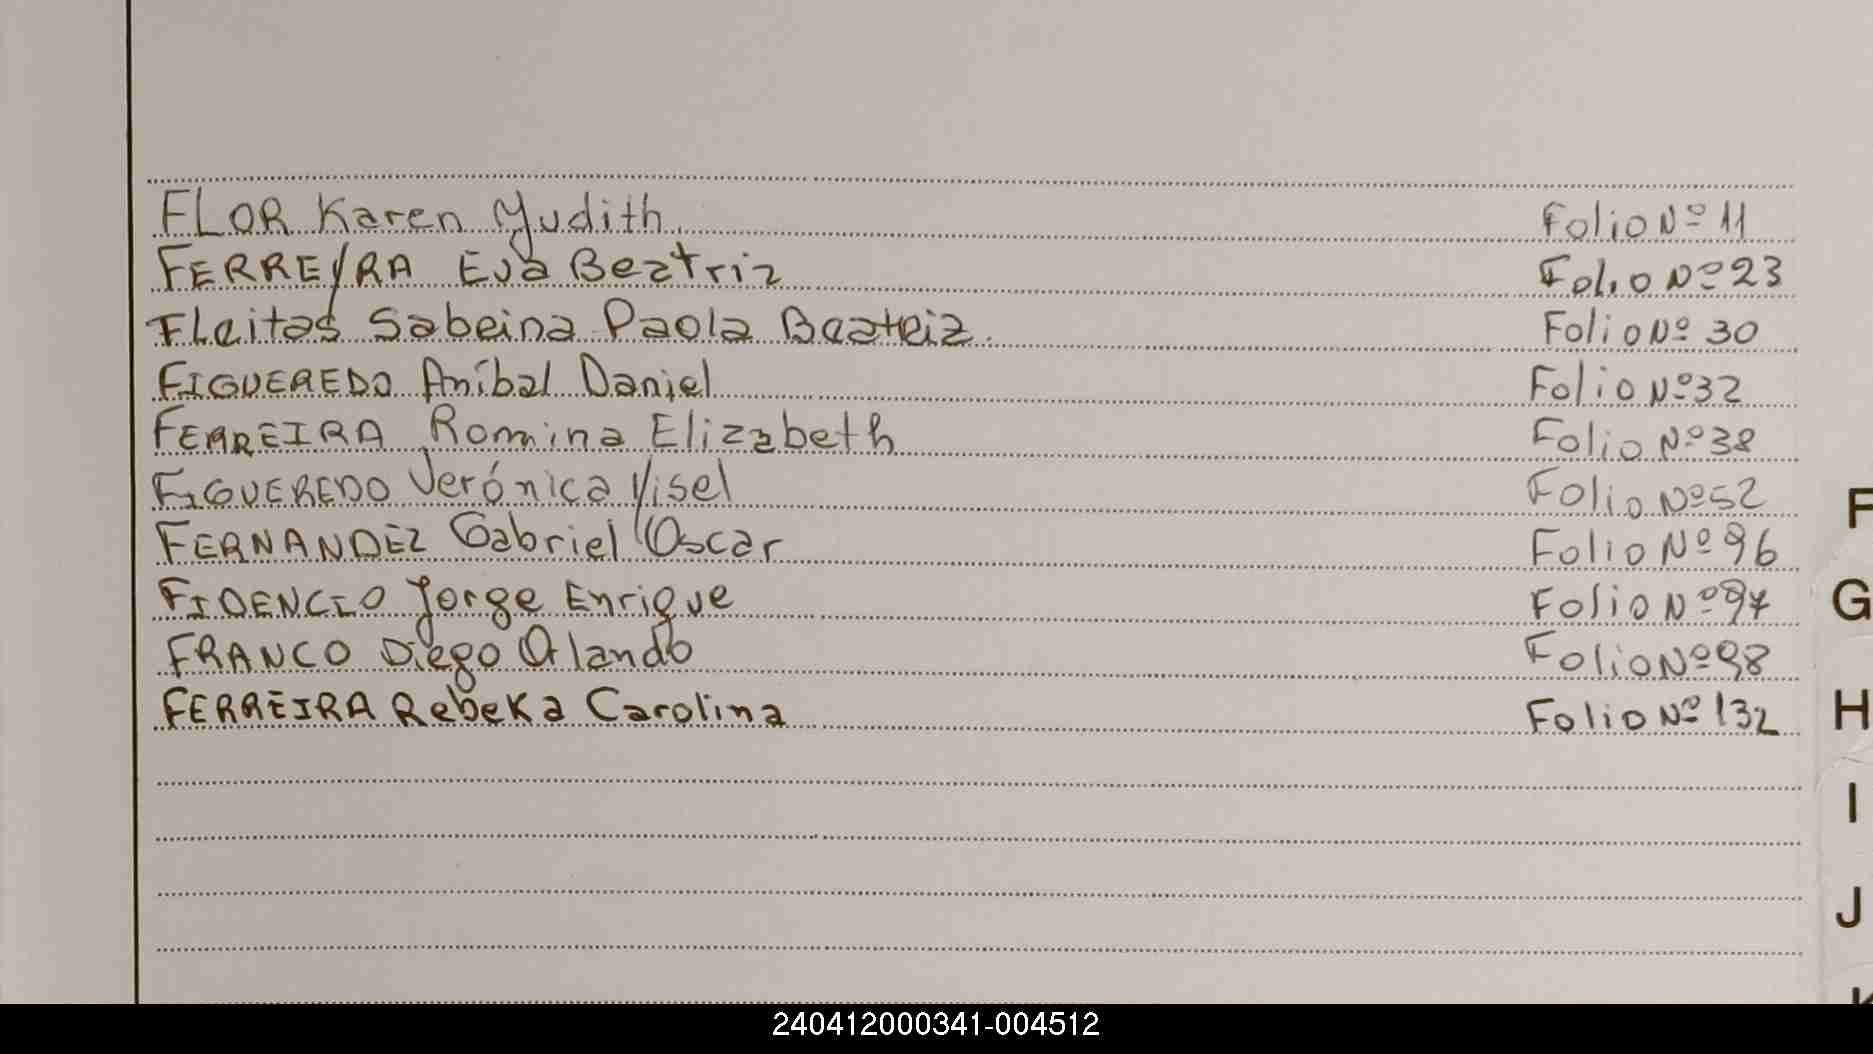 FLOR Karen Yudith. Folio Nº 11
FERREYRA Eva Beatriz Folio Nº 23
FLeitas Sabeina Paola Beatriz. Folio Nº 30
FIGUEREDO Aníbal Daniel Folio Nº 32
FERREIRA Romina Elizabeth Folio Nº 38
FIGUEREDO Verónica Yisel Folio Nº 52
FERNANDEZ Gabriel Oscar Folio Nº 96
FIDENCIO Jorge Enrique Folio Nº 97
FRANCO Diego Orlando Folio Nº 98
FERREIRA Rebeka Carolina Folio Nº 132
F
G
H
I
J
240412000341-004512